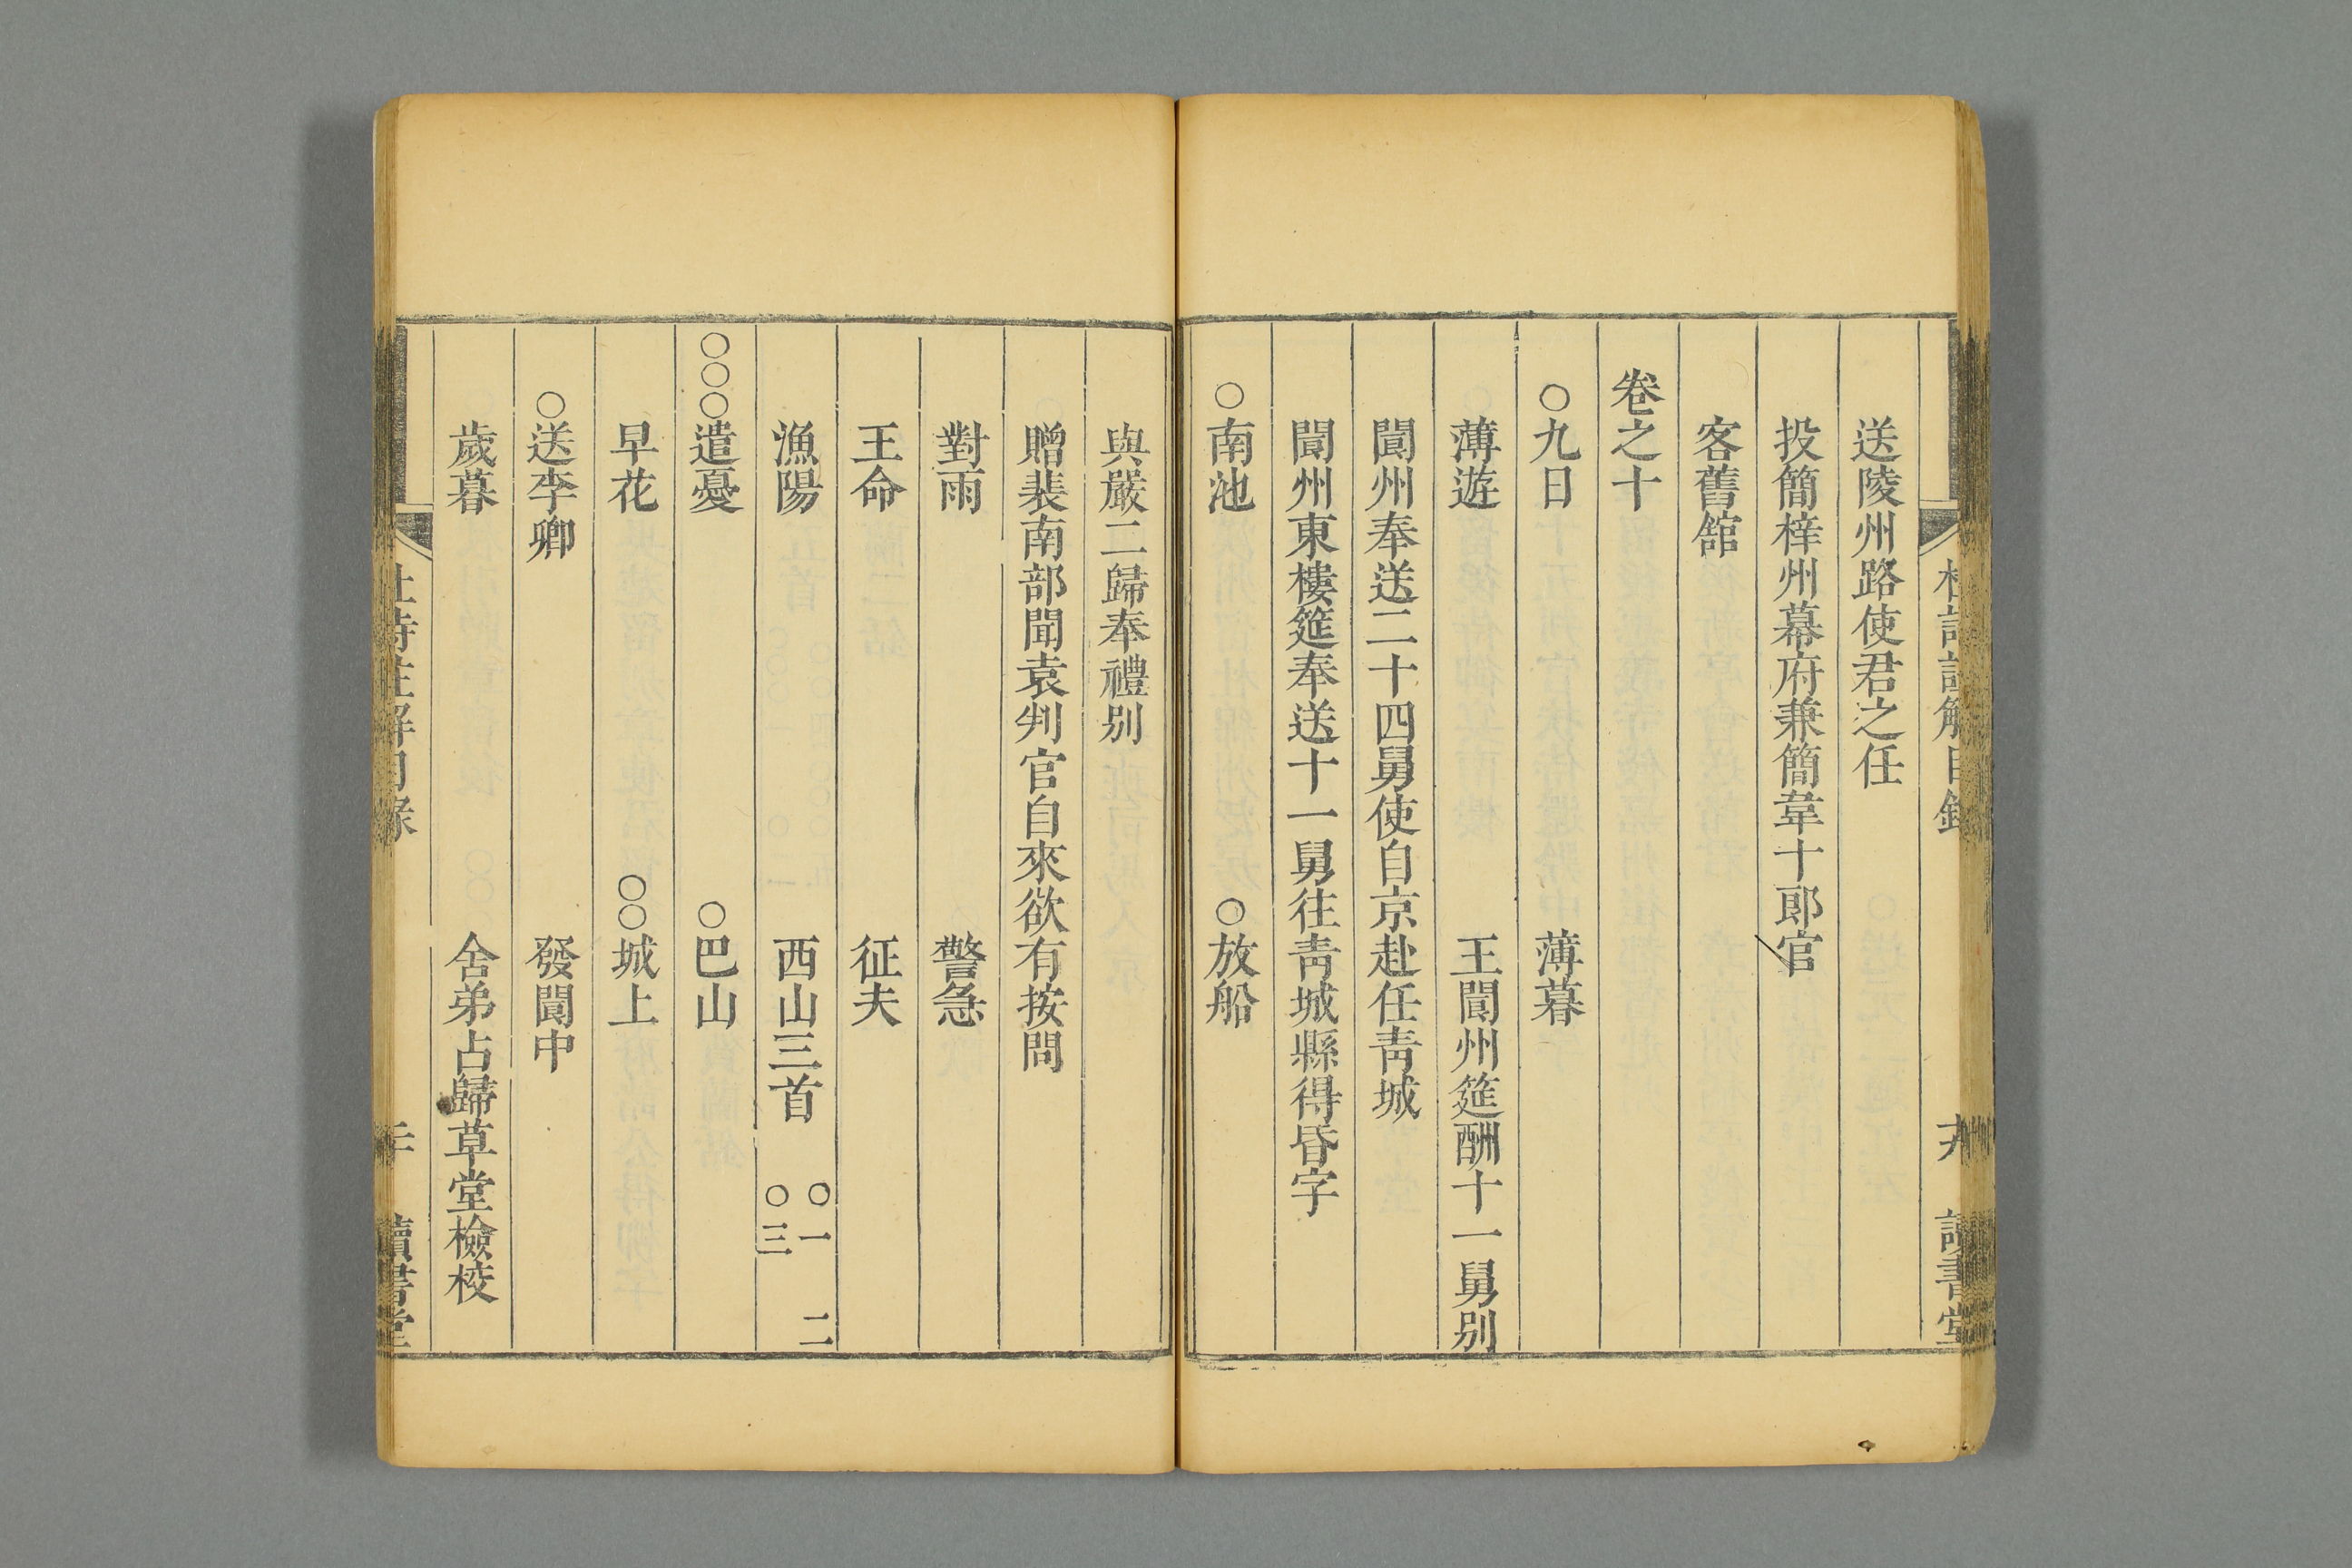 送陵州路使君之任
投簡梓州幕府兼簡韋十郎官
客舊館
卷之十
○九日 薄暮
薄遊 王閬州筵酬十一舅別
閬州奉送二十四舅使自京赴任靑城
閬州東樓筵奉送十一舅往靑城縣得昏字
○南池 ○放船
與嚴二歸奉禮別
贈裴南部聞袁判官自來欲有按問
對雨 警急
王命 征夫
漁陽 西山三首 ○一 二 ○三
○○○遣憂 ○巴山
早花 ○○城上
○送李卿 發閬中
歲暮 舍弟占歸草堂檢校
杜詩註解目錄 讀書堂